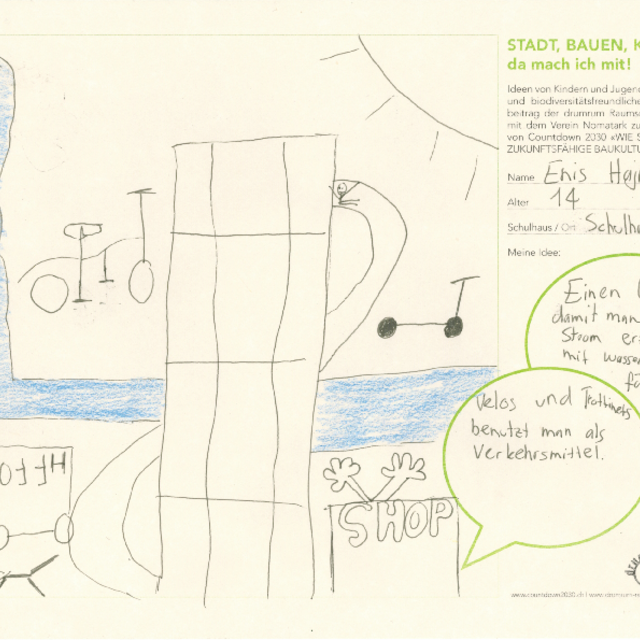 STADT, BAUEN, K
da mach ich mit!
Ideen von Kindern und Jugen
und biodiversitätsfreundliche
beitrag der drumrum Raumsc
mit dem Verein Nomatark zu
von Countdown 2030 «WIE S
ZUKUNFTSFÄHIGE BAUKULTU
Name Enis
Alter 14
Schulhaus / Ort
Meine Idee:
Einen
damit man
Strom
mit wasser
Velos und Trottinets
benutzt man als
Verkehrsmittel.
SHOP
www.countdown2030.ch